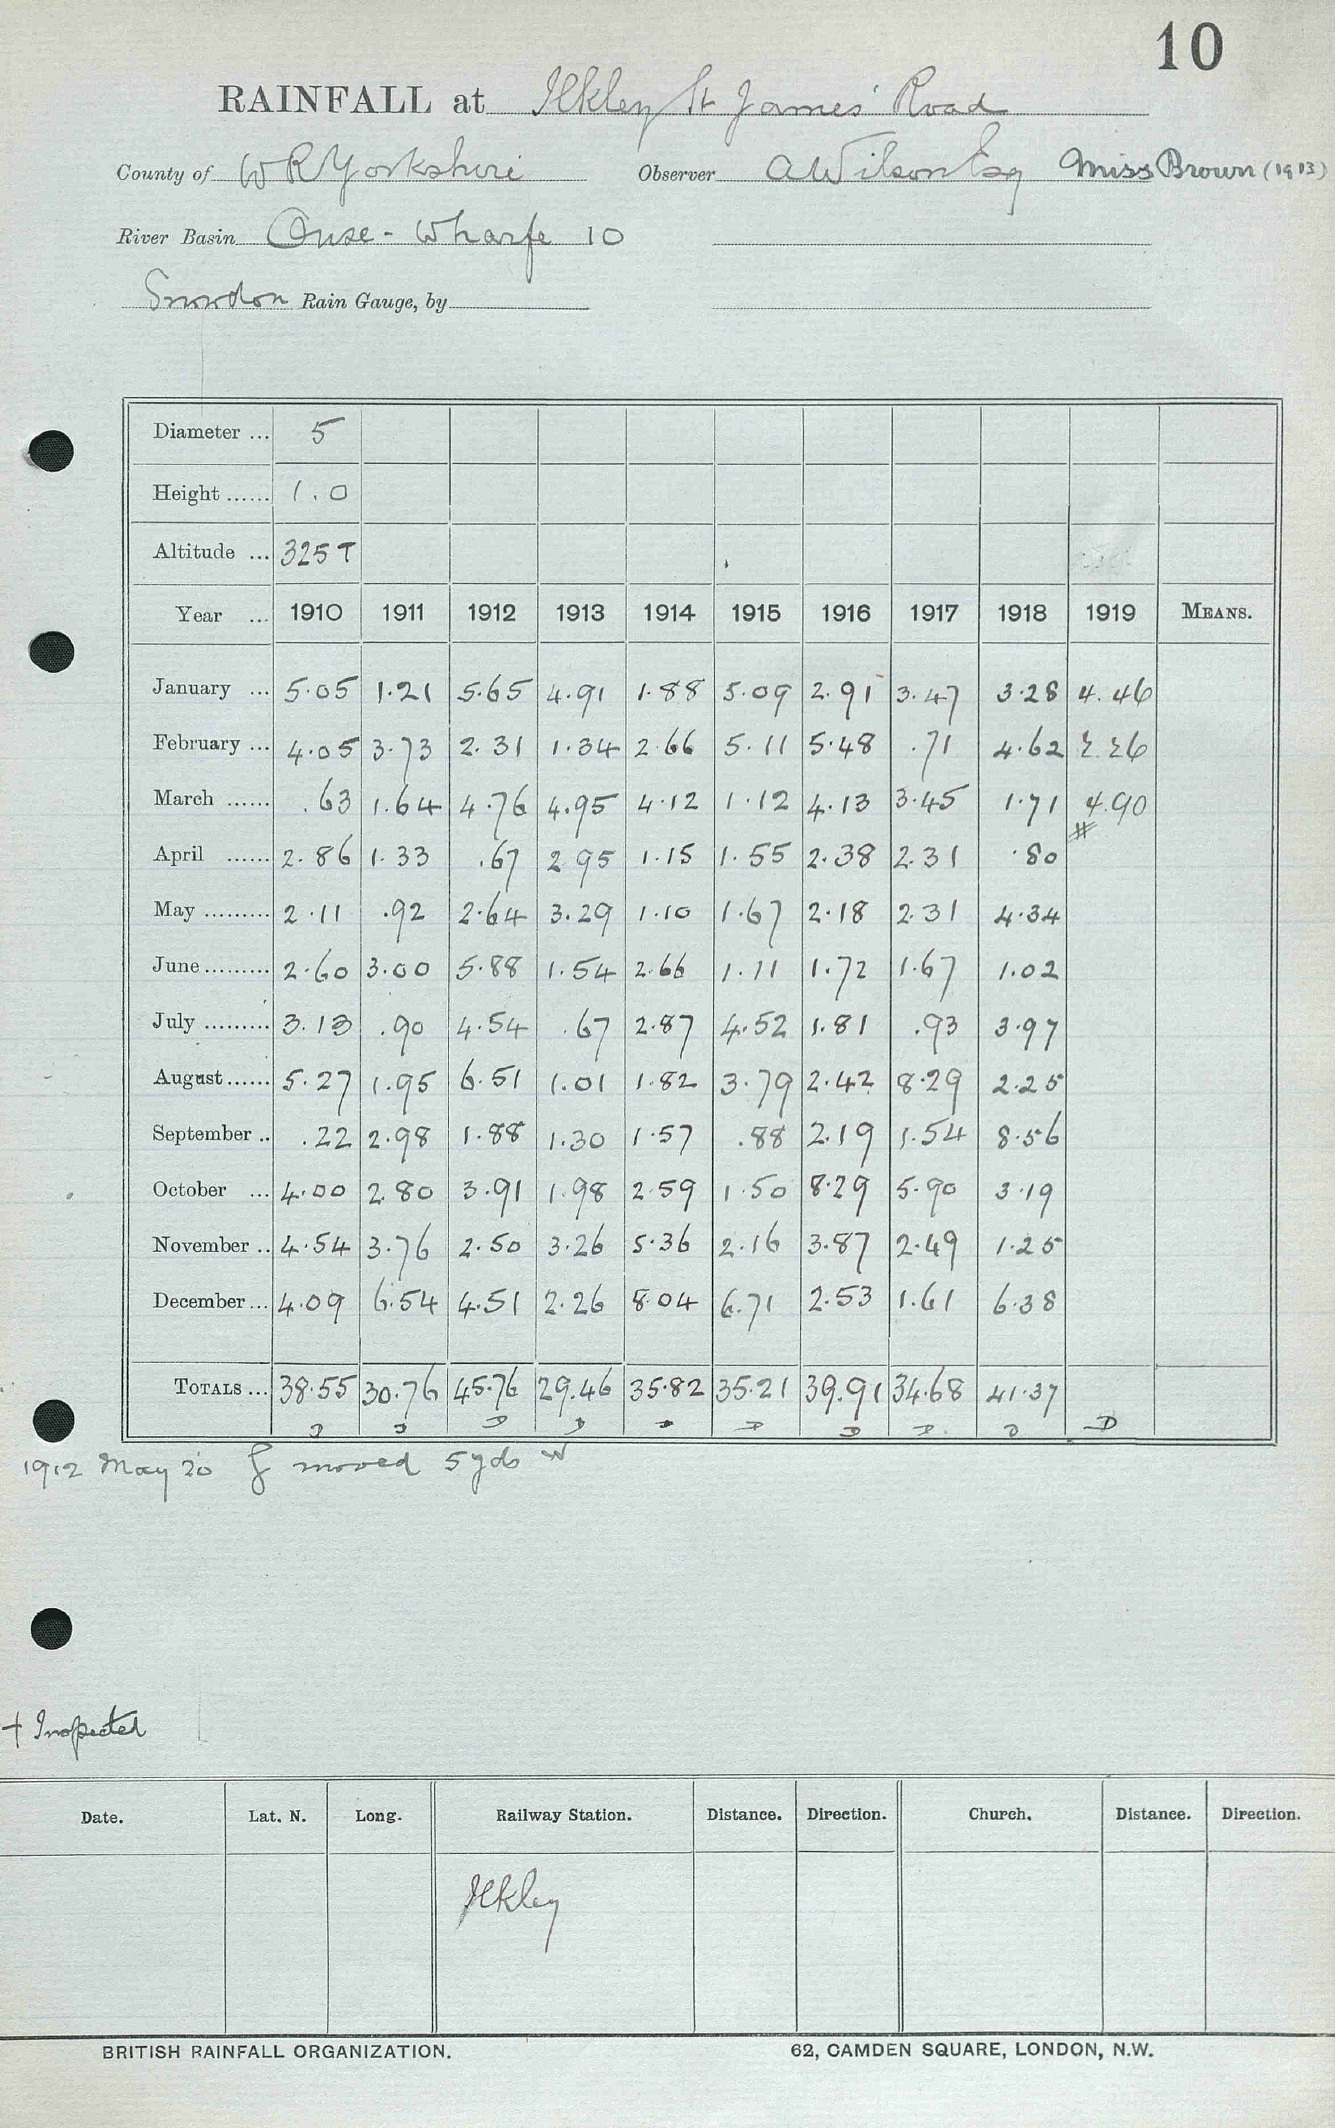 10
RAINFALL at Ilkley St James' Road
County of W R Yorkshire Observer A Wilson Esq Miss Brown (1913)
River Basin Ouse - Wharfe 10
Snowdon Rain Gauge, by
Diameter ... 5
Height ...... 1.0
Altitude ... 325 T
Year ... 1910 1911 1912 1913 1914 1915 1916 1917 1918 1919 MEANS.
January ... 5.05 1.21 5.65 4.91 1.88 5.09 2.91 3.47 3.28 4.46
February ... 4.05 3.73 2.31 1.34 2.66 5.11 5.48 .71 4.62 2.26
March ...... .63 1.64 4.76 4.95 4.12 1.12 4.13 3.45 1.71 4.90
#
April ...... 2.86 1.33 .67 2.95 1.15 1.55 2.38 2.31 .80
May ......... 2.11 .92 2.64 3.29 1.10 1.67 2.18 2.31 4.34
June ......... 2.60 3.00 5.88 1.54 2.66 1.11 1.72 1.67 1.02
July ......... 3.13 .90 4.54 .67 2.87 4.52 1.81 .93 3.97
August ...... 5.27 1.95 6.51 1.01 1.82 3.79 2.42 8.29 2.25
September .. .22 2.98 1.88 1.30 1.57 .88 2.19 1.54 8.56
October ... 4.00 2.80 3.91 1.98 2.59 1.50 8.29 5.90 3.19
November .. 4.54 3.76 2.50 3.26 5.36 2.16 3.87 2.49 1.25
December ... 4.09 6.54 4.51 2.26 8.04 6.71 2.53 1.61 6.38
TOTALS ... 38.55 30.76 45.76 29.46 35.82 35.21 39.91 34.68 41.37
D D D D D D D D D D
1912 May 20 G moved 5 yds W
† Inspected
Date. Lat. N. Long. Railway Station. Distance. Direction. Church. Distance. Direction.
Ilkley
BRITISH RAINFALL ORGANIZATION. 62, CAMDEN SQUARE, LONDON, N.W.